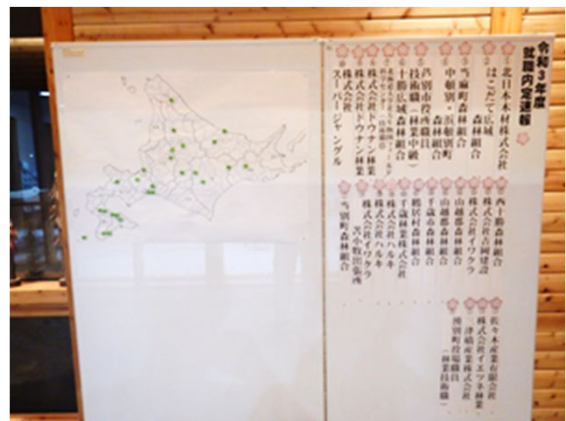 令和3年度
就職内定速報
北日本木材株式会社
はこだて広域
森林組合
当麻町森林組合
中頓別・浜頓別町
森林組合
芦別市役所職員
技術職（林業中級）
十勝広域森林組合
株式会社ドウナン林業
株式会社ドウナン林業
株式会社
スーパージャングル
西十勝森林組合
株式会社吉岡建設
株式会社イワクラ
山越郡森林組合
山越郡森林組合
千歳市森林組合
鶴居村森林組合
千歳林業株式会社
株式会社ハルキ
株式会社ハルキ
株式会社イワクラ
苫小牧出張所
当別町森林組合
佐々木産業有限会社
株式会社イエツネ林業
三津橋産業株式会社
湧別町役場職員
（林業技術職）